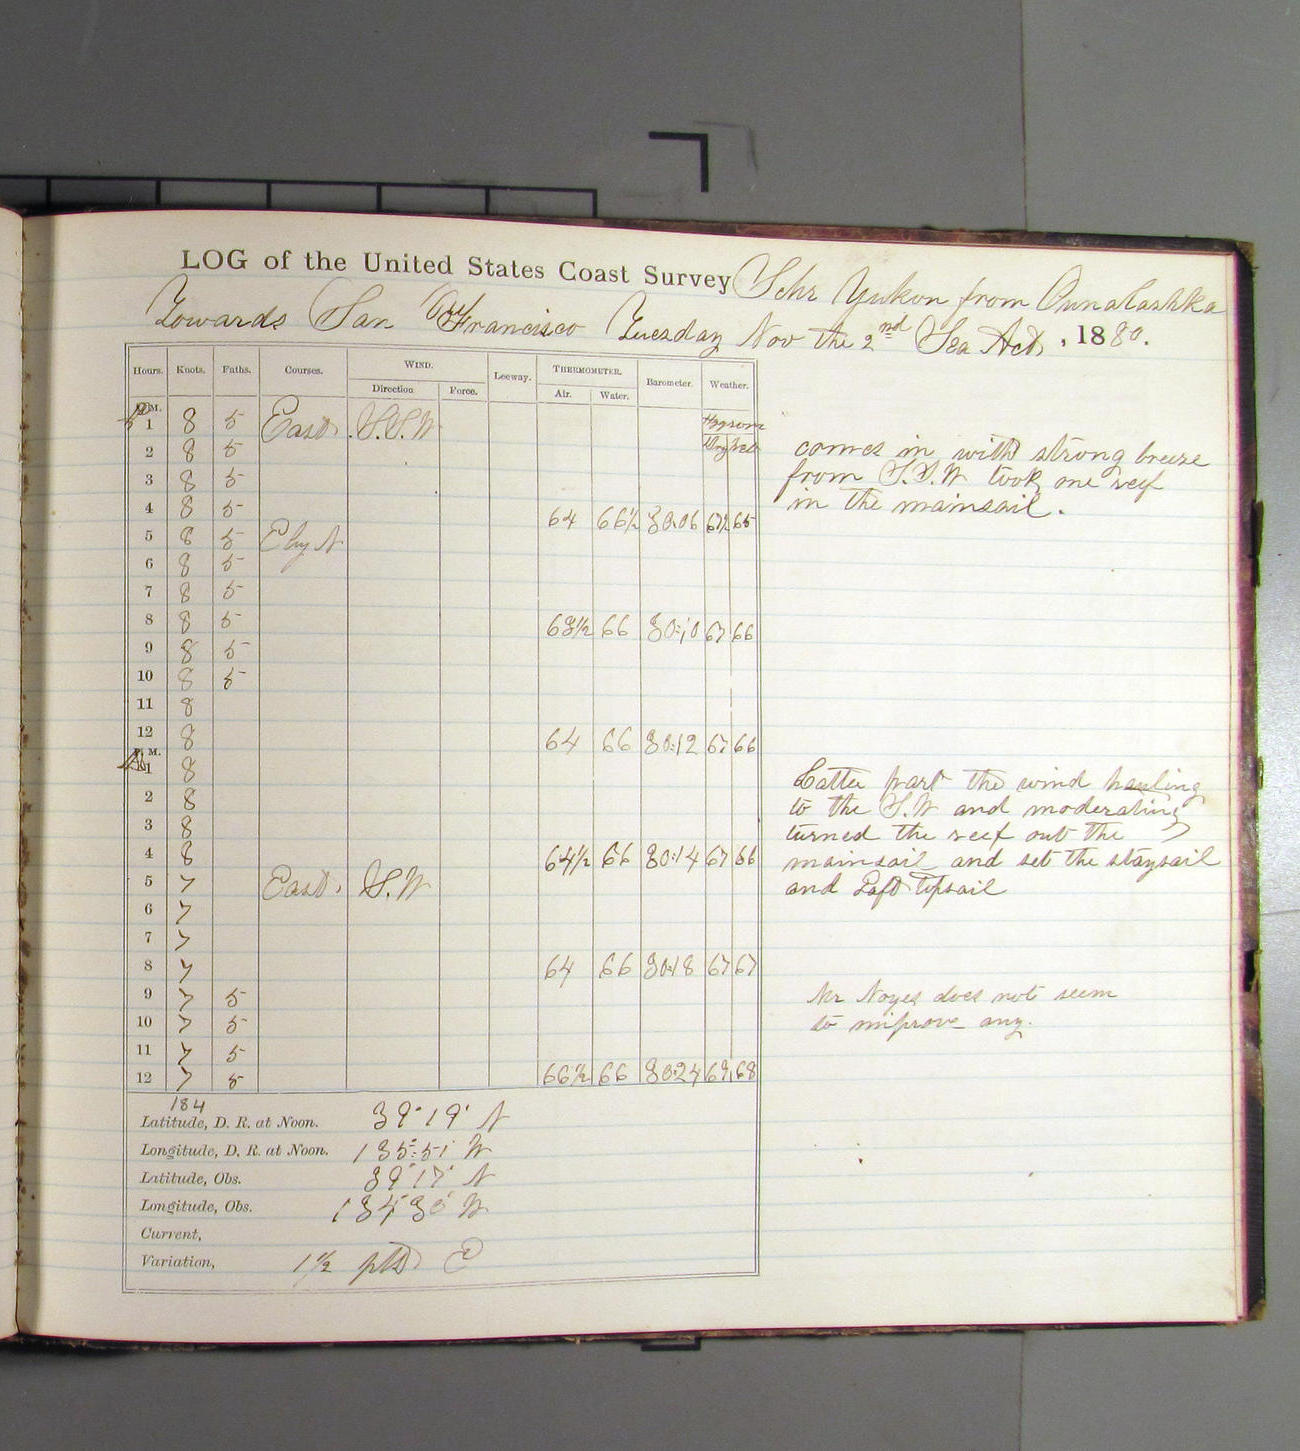 LOG of the United States Coast Survey Schr Yukon from Ounalashka
Towards San Francisco Tuesday Nov the 2nd Sea Act, , 1880.
Hours. Knots. Faths. Courses. WIND. Leeway. THERMOMETER. Barometer. Weather.
Direction Force. Air. Water.
P M.
1 8 5 East. S.S.W
2 8 5 Dry Wet
comes in with strong breeze
3 8 5
from S.S.W took one reef
4 8 5 64 66½ 30.06 67½ 65
in the mainsail.
5 8 5 E by N
6 8 5
7 8 5
8 8 5 63½ 66 30:10 67 66
9 8 5
10 8 5
11 8
12 8 64 66 30:12 67 66
A M.
1 8
Latter part the wind hauling
2 8
to the S.W and moderating
3 8
turned the reef out the
4 8 64½ 66 30:14 67 66
mainsail and set the staysail
5 7 East. S.W
and Gaft Topsail
6 7
7 7
8 7 64 66 30:18 67 67
9 7 5
Mr Noyes does not seem
10 7 5
to improve any.
11 7 5
12 7 5 66½ 66 30:24 69 68
184
Latitude, D. R. at Noon. 39° 19' N
Longitude, D. R. at Noon. 135:51' W
Latitude, Obs. 39° 17' N
Longitude, Obs. 134° 30' W
Current,
Variation, 1½ pts E